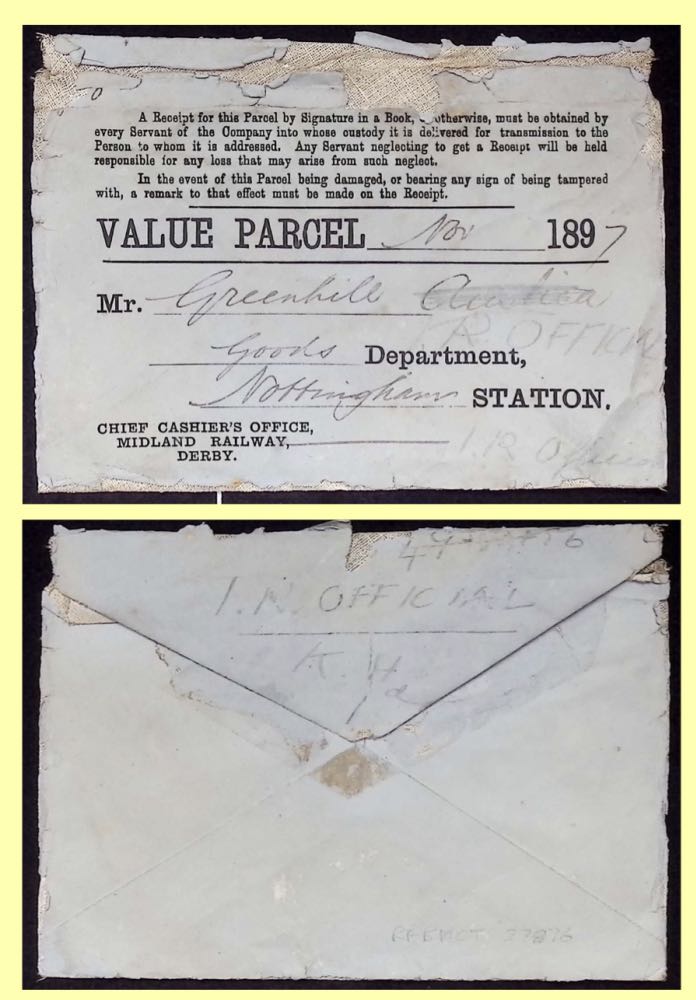 A Receipt for this Parcel by Signature in a Book, otherwise, must be obtained by
every Servant of the Company into whose custody it is delivered for transmission to the
Person to whom it is addressed. Any Servant neglecting to get a Receipt will be held
responsible for any loss that may arise from such neglect.
In the event of this Parcel being damaged, or bearing any sign of being tampered
with, a remark to that effect must be made on the Receipt.
VALUE PARCEL Nov 1897
Mr. Greenhill
R OFFICIAL
Goods Department,
Nottingham STATION.
CHIEF CASHIER'S OFFICE,
MIDLAND RAILWAY,
DERBY.
I.N. OFFICIAL